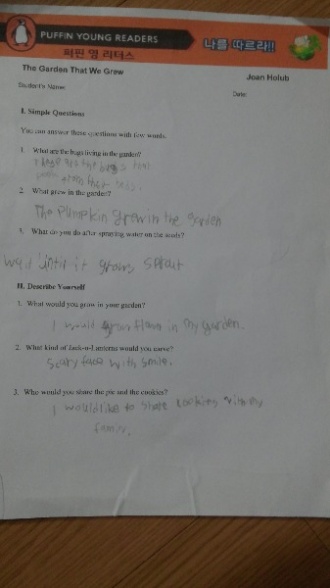 PUFFIN YOUNG READERS
퍼핀 영 리더스
나를 따르라!!
The Garden That We Grew
Joan Holub
Student's Name:
Date:
I. Simple Questions
You can answer these questions with few words.
1. What are the bugs living in the garden?
2. What grew in the garden?
The Pumpkin grew in the garden
3. What do you do after spraying water on the seeds?
wait until it grows sprout
II. Describe Yourself
1. What would you grow in your garden?
I would grow in my garden.
2. What kind of Jack-o-Lanterns would you carve?
Scary face with smile.
3. Who would you share the pie and the cookies?
I would like to share cookies with my